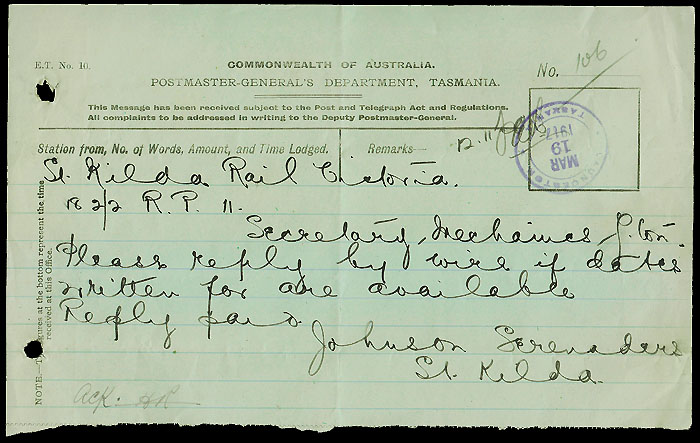 E.T. No. 10.
COMMONWEALTH OF AUSTRALIA.
POSTMASTER-GENERAL'S DEPARTMENT, TASMANIA.
No. 106
This Message has been received subject to the Post and Telegraph Act and Regulations.
All complaints to be addressed in writing to the Deputy Postmaster-General.
Station from, No. of Words, Amount, and Time Lodged.
Remarks—
12.11
MAR
19
1917
St. Kilda Rail Victoria.
18 2/2 R.P. 11.
Secretary Mechanics L.ton
Please reply by wire if dates
written for are available
Reply paid
Johnson Serenaders
St. Kilda.
NOTE.— figures at the bottom represent the time received at this Office.
Ack.